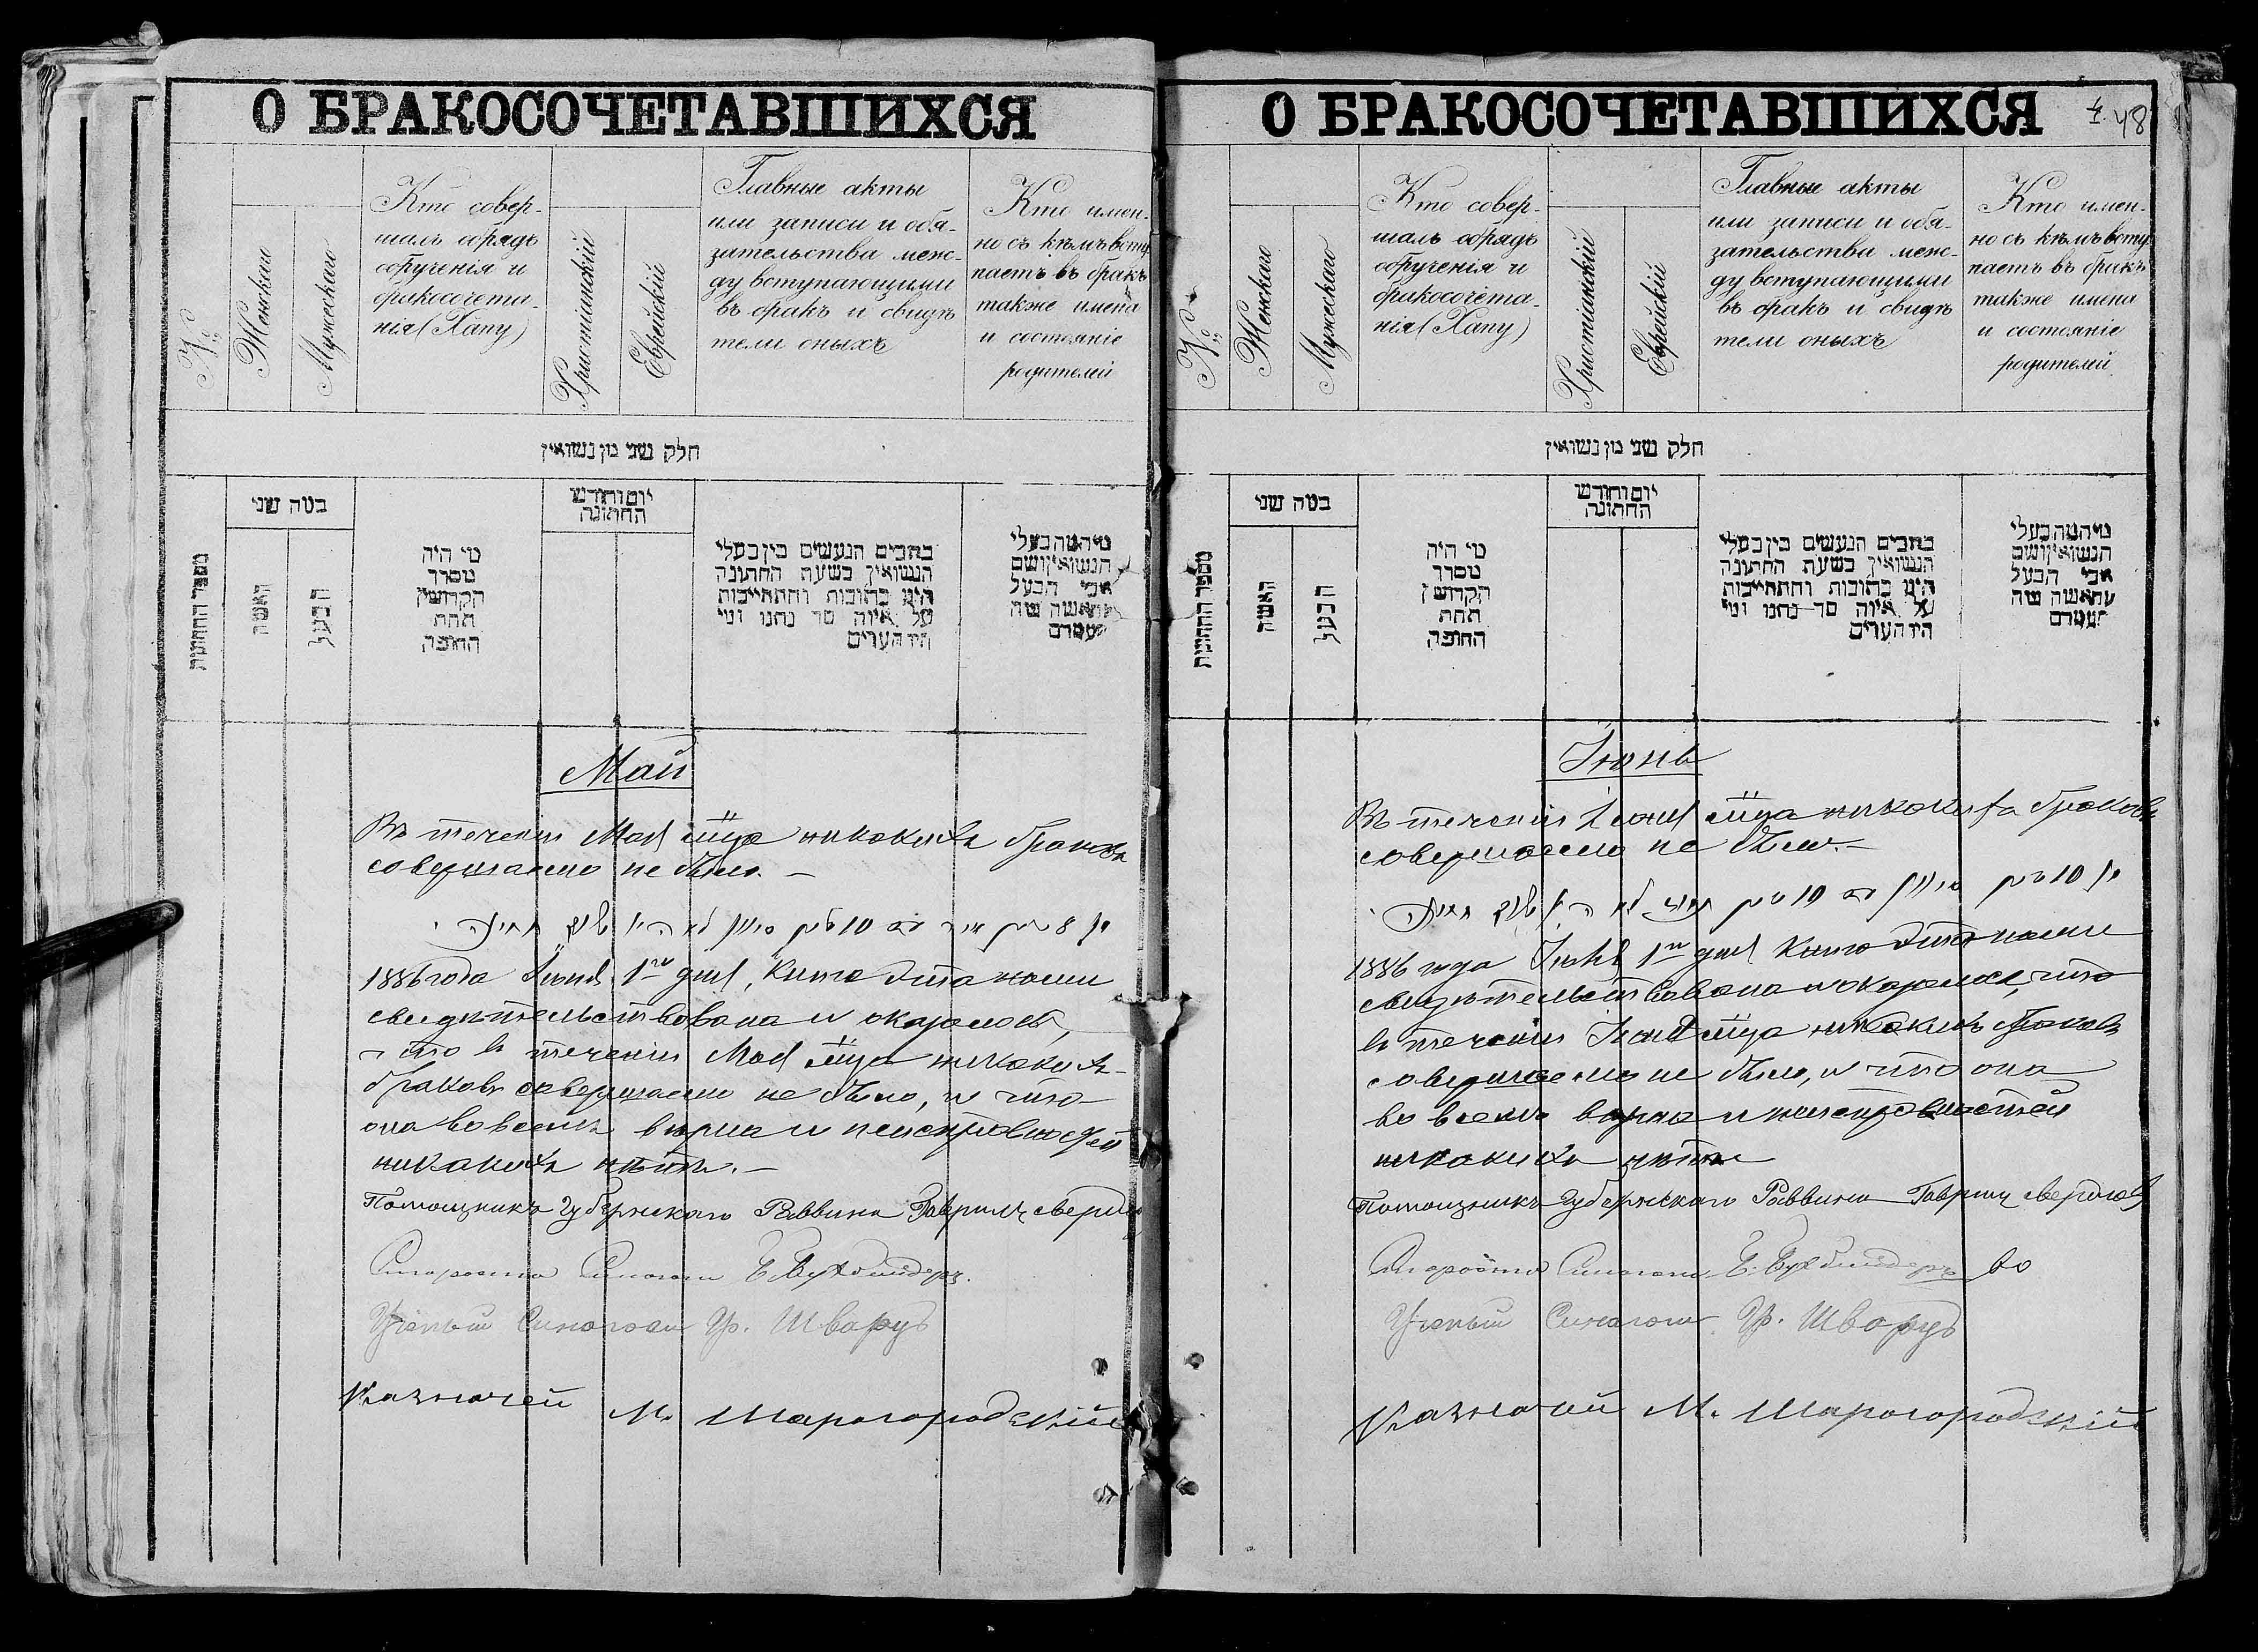 О БРАКОСОЧЕТАВШИХСЯ
№
Женскаго
Мужескаго
Кто совер-
шалъ обрядъ
обрученія и
бракосочета-
нія (Хапу)
Христіанскій
Еврейскій
Главные акты
или записи и обя-
зательства меж-
ду вступающими
въ бракъ и свидѣ
тели оныхъ
Кто имен-
но съ кѣмъ всту
паетъ въ бракъ
также имена
и состояніе
родителей
חלק שני מן נשואין
מספר החתונות
כמה שני
האשה
הבעל
מי היה
מסדר
הקדושין
תחת
החופה
יום וחודש
החתונה
כתבים הנעשים בין בעלי
הנשואין בשעת החתונה
היינו כתובות והתחייבות
על איזה סך נתנו ומי
היו העדים
מי המה בעלי
הנשואין ושם
אבי הבעל
והאשה
Май
Въ теченіи Мая м-ца никакихъ браковъ
совершаемо не было. —
1886 года Іюня 1го дня, книга эта нами
свидѣтельствована и оказалось,
что въ теченіи Мая м-ца никакихъ
браковъ совершаемо не было, и что
она во всемъ вѣрна и неисправностей
никакихъ нѣтъ. —
Помощникъ Губернскаго Раввина Гавріилъ Сверд
Староста Синагоги Б. Бухбиндеръ.
Ученый Синагоги Гр. Шварцъ
Казначей М. Шарогородскій
О БРАКОСОЧЕТАВШИХСЯ
48
№
Женскаго
Мужескаго
Кто совер-
шалъ обрядъ
обрученія и
бракосочета-
нія (Хапу)
Христіанскій
Еврейскій
Главные акты
или записи и обя-
зательства меж-
ду вступающими
въ бракъ и свидѣ
тели оныхъ
Кто имен-
но съ кѣмъ всту
паетъ въ бракъ
также имена
и состояніе
родителей
חלק שני מן נשואין
מספר החתונות
כמה שני
האשה
הבעל
מי היה
מסדר
הקדושין
תחת
החופה
יום וחודש
החתונה
כתבים הנעשים בין בעלי
הנשואין בשעת החתונה
היינו כתובות והתחייבות
על איזה סך נתנו ומי
היו העדים
מי המה בעלי
הנשואין ושם
אבי הבעל
והאשה
Іюнь
Въ теченіи Іюня м-ца никакихъ браковъ
совершаемо не было. —
1886 года 1го дня книга эта нами
свидѣтельствована и оказалось, что
въ теченіи Іюня м-ца никакихъ браковъ
совершаемо не было, и что она
во всемъ вѣрна и неисправностей
никакихъ нѣтъ
Помощникъ Губернскаго Раввина Гавріилъ Свердловъ
Староста Синагоги Б. Бухбиндеръ
Ученый Синагоги Гр. Шварцъ
Казначей М. Шарогородскій